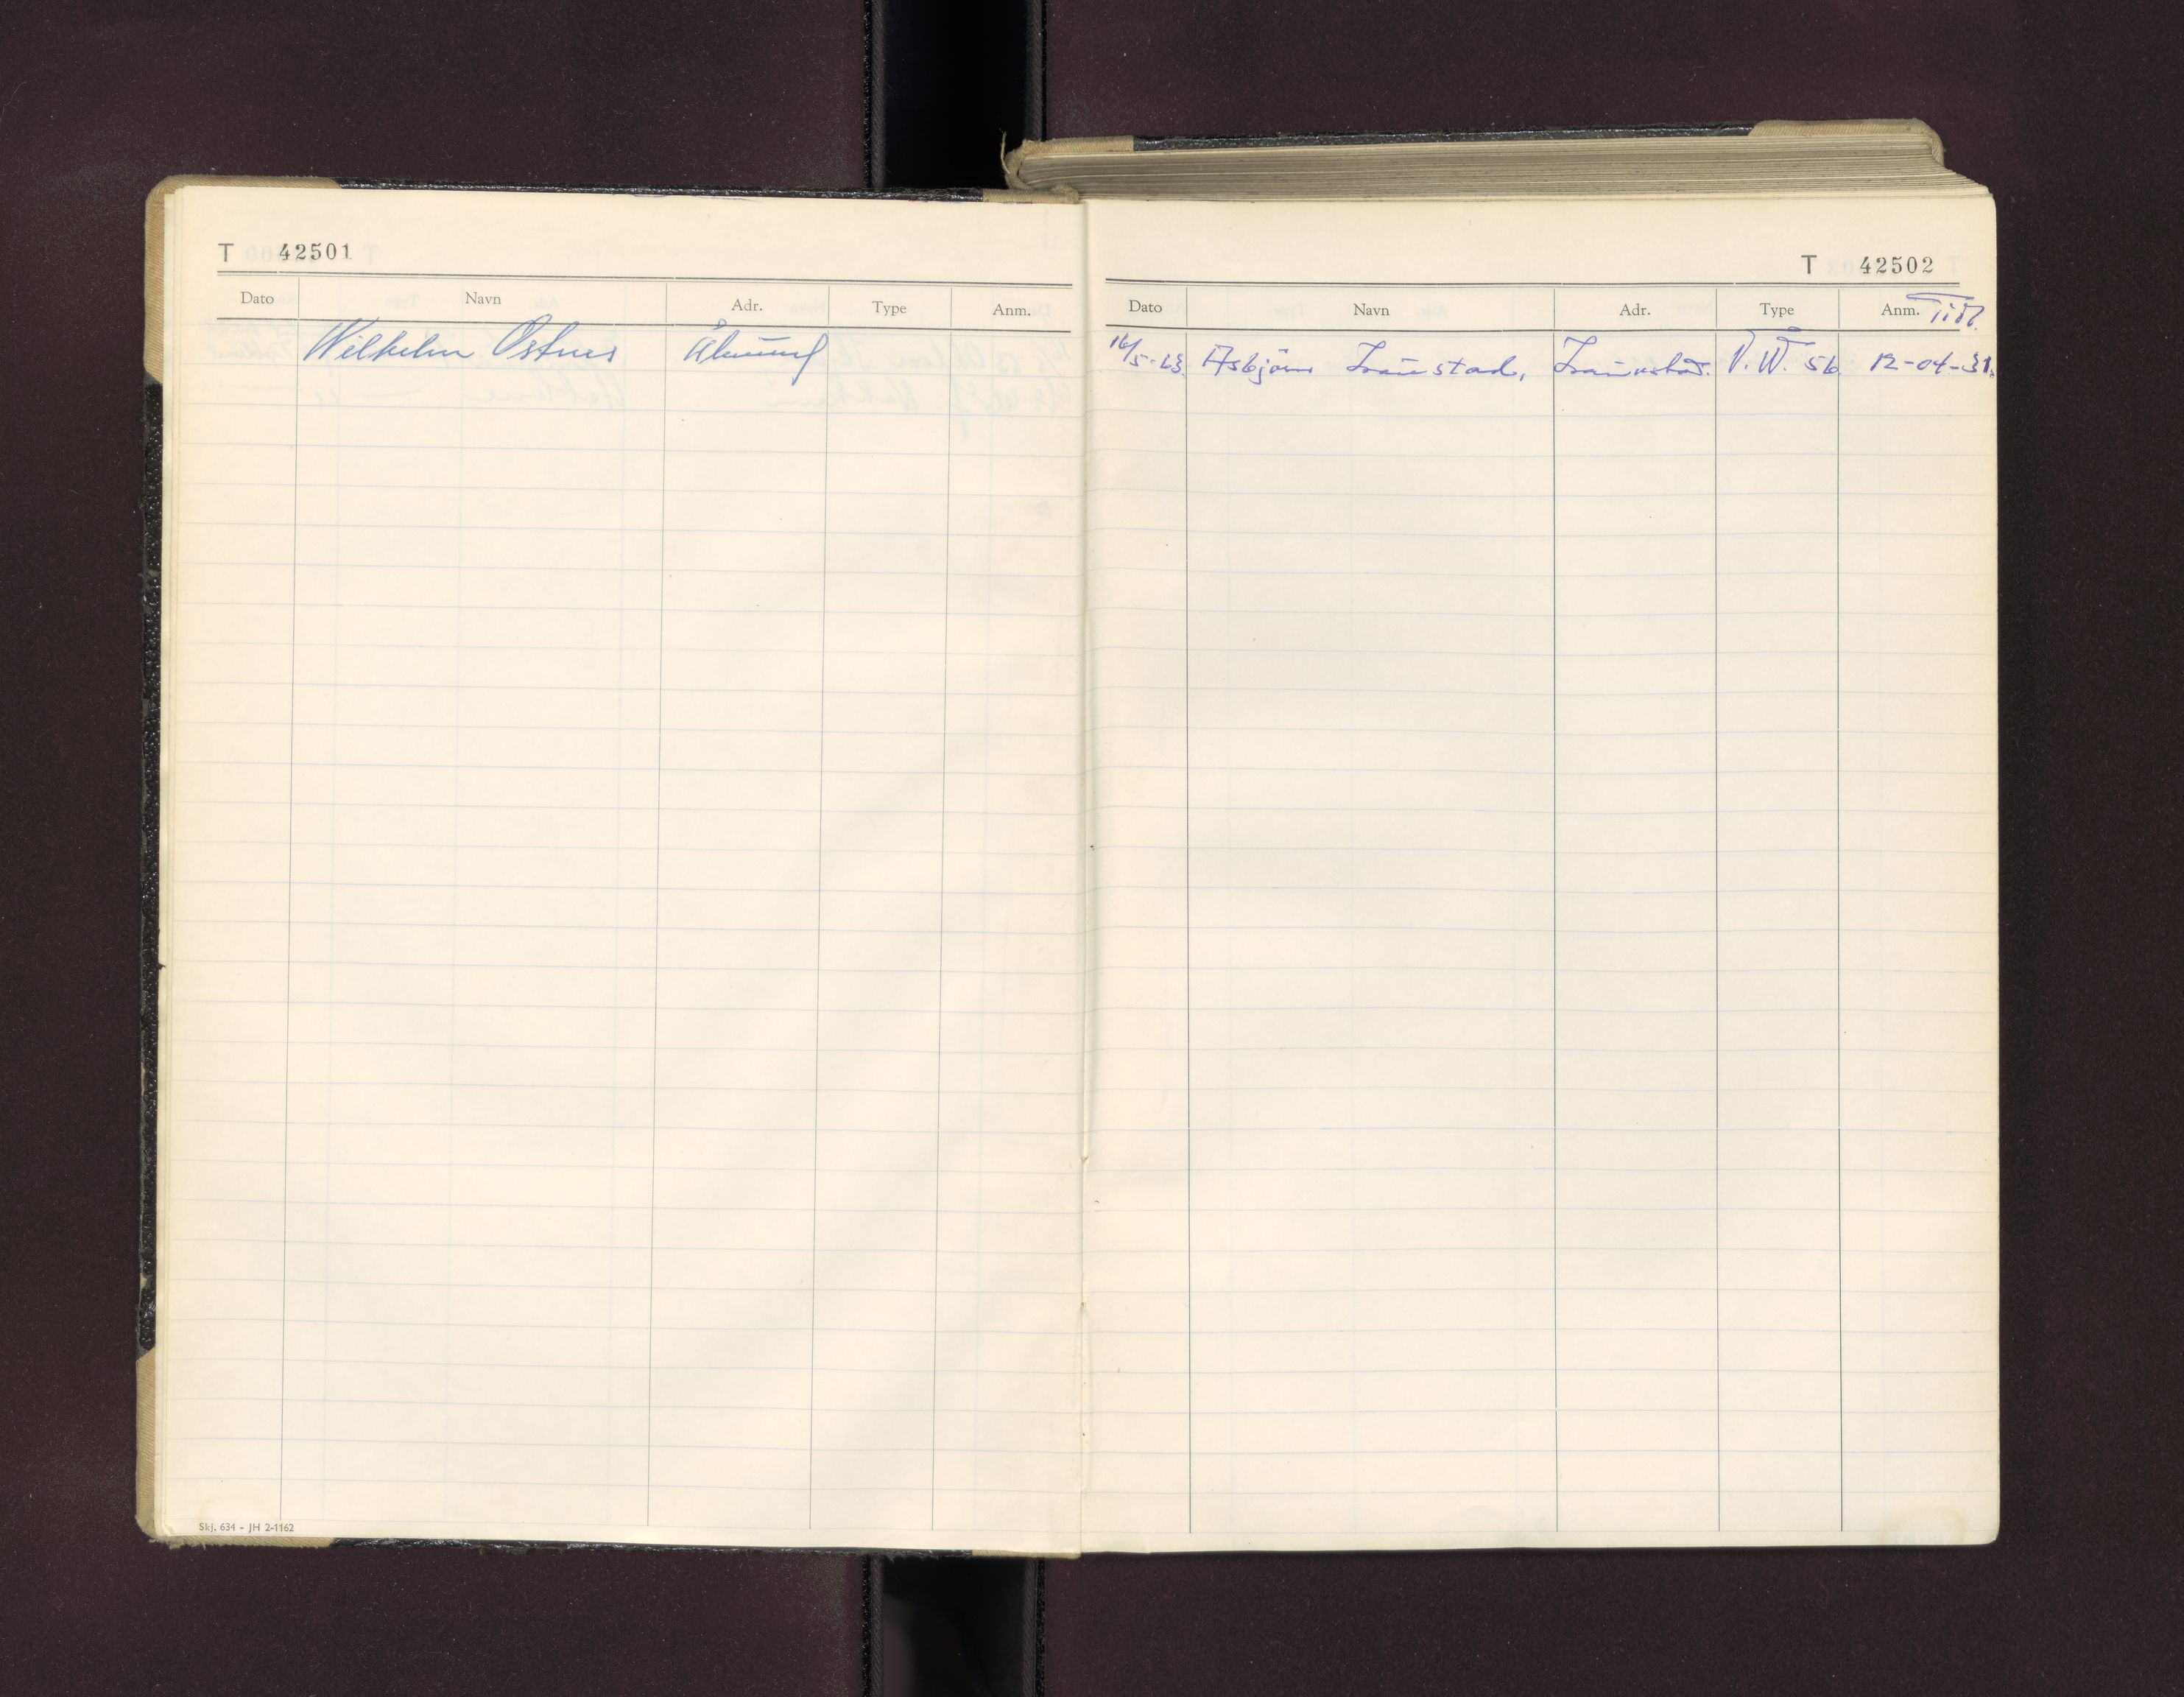 T 42501
Dato Navn Adr. Type Anm.
Wilhelm Ostnes Ålesund
Skj. 634 - JH 2-1162
T 42502
Dato Navn Adr. Type Anm. Tidl.
16/5-63. Asbjörn V.W. 56 12-04-31.